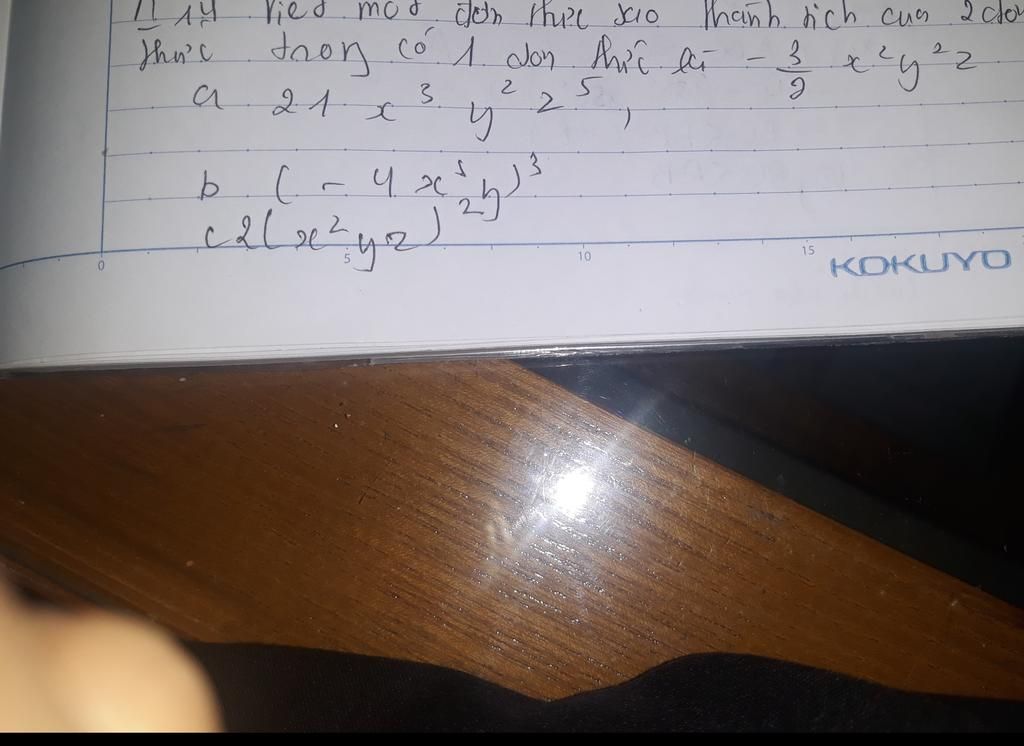 11 14 Viết mot đơn thức sao thành tích của 2 đơn
thức trong có 1 đơn thức là - 3/2 x²y²z
a 21 x³ y² z⁵,
b (- 4 x⁵ y)³
c 2(x²yz)²
0 5 10 15
KOKUYO